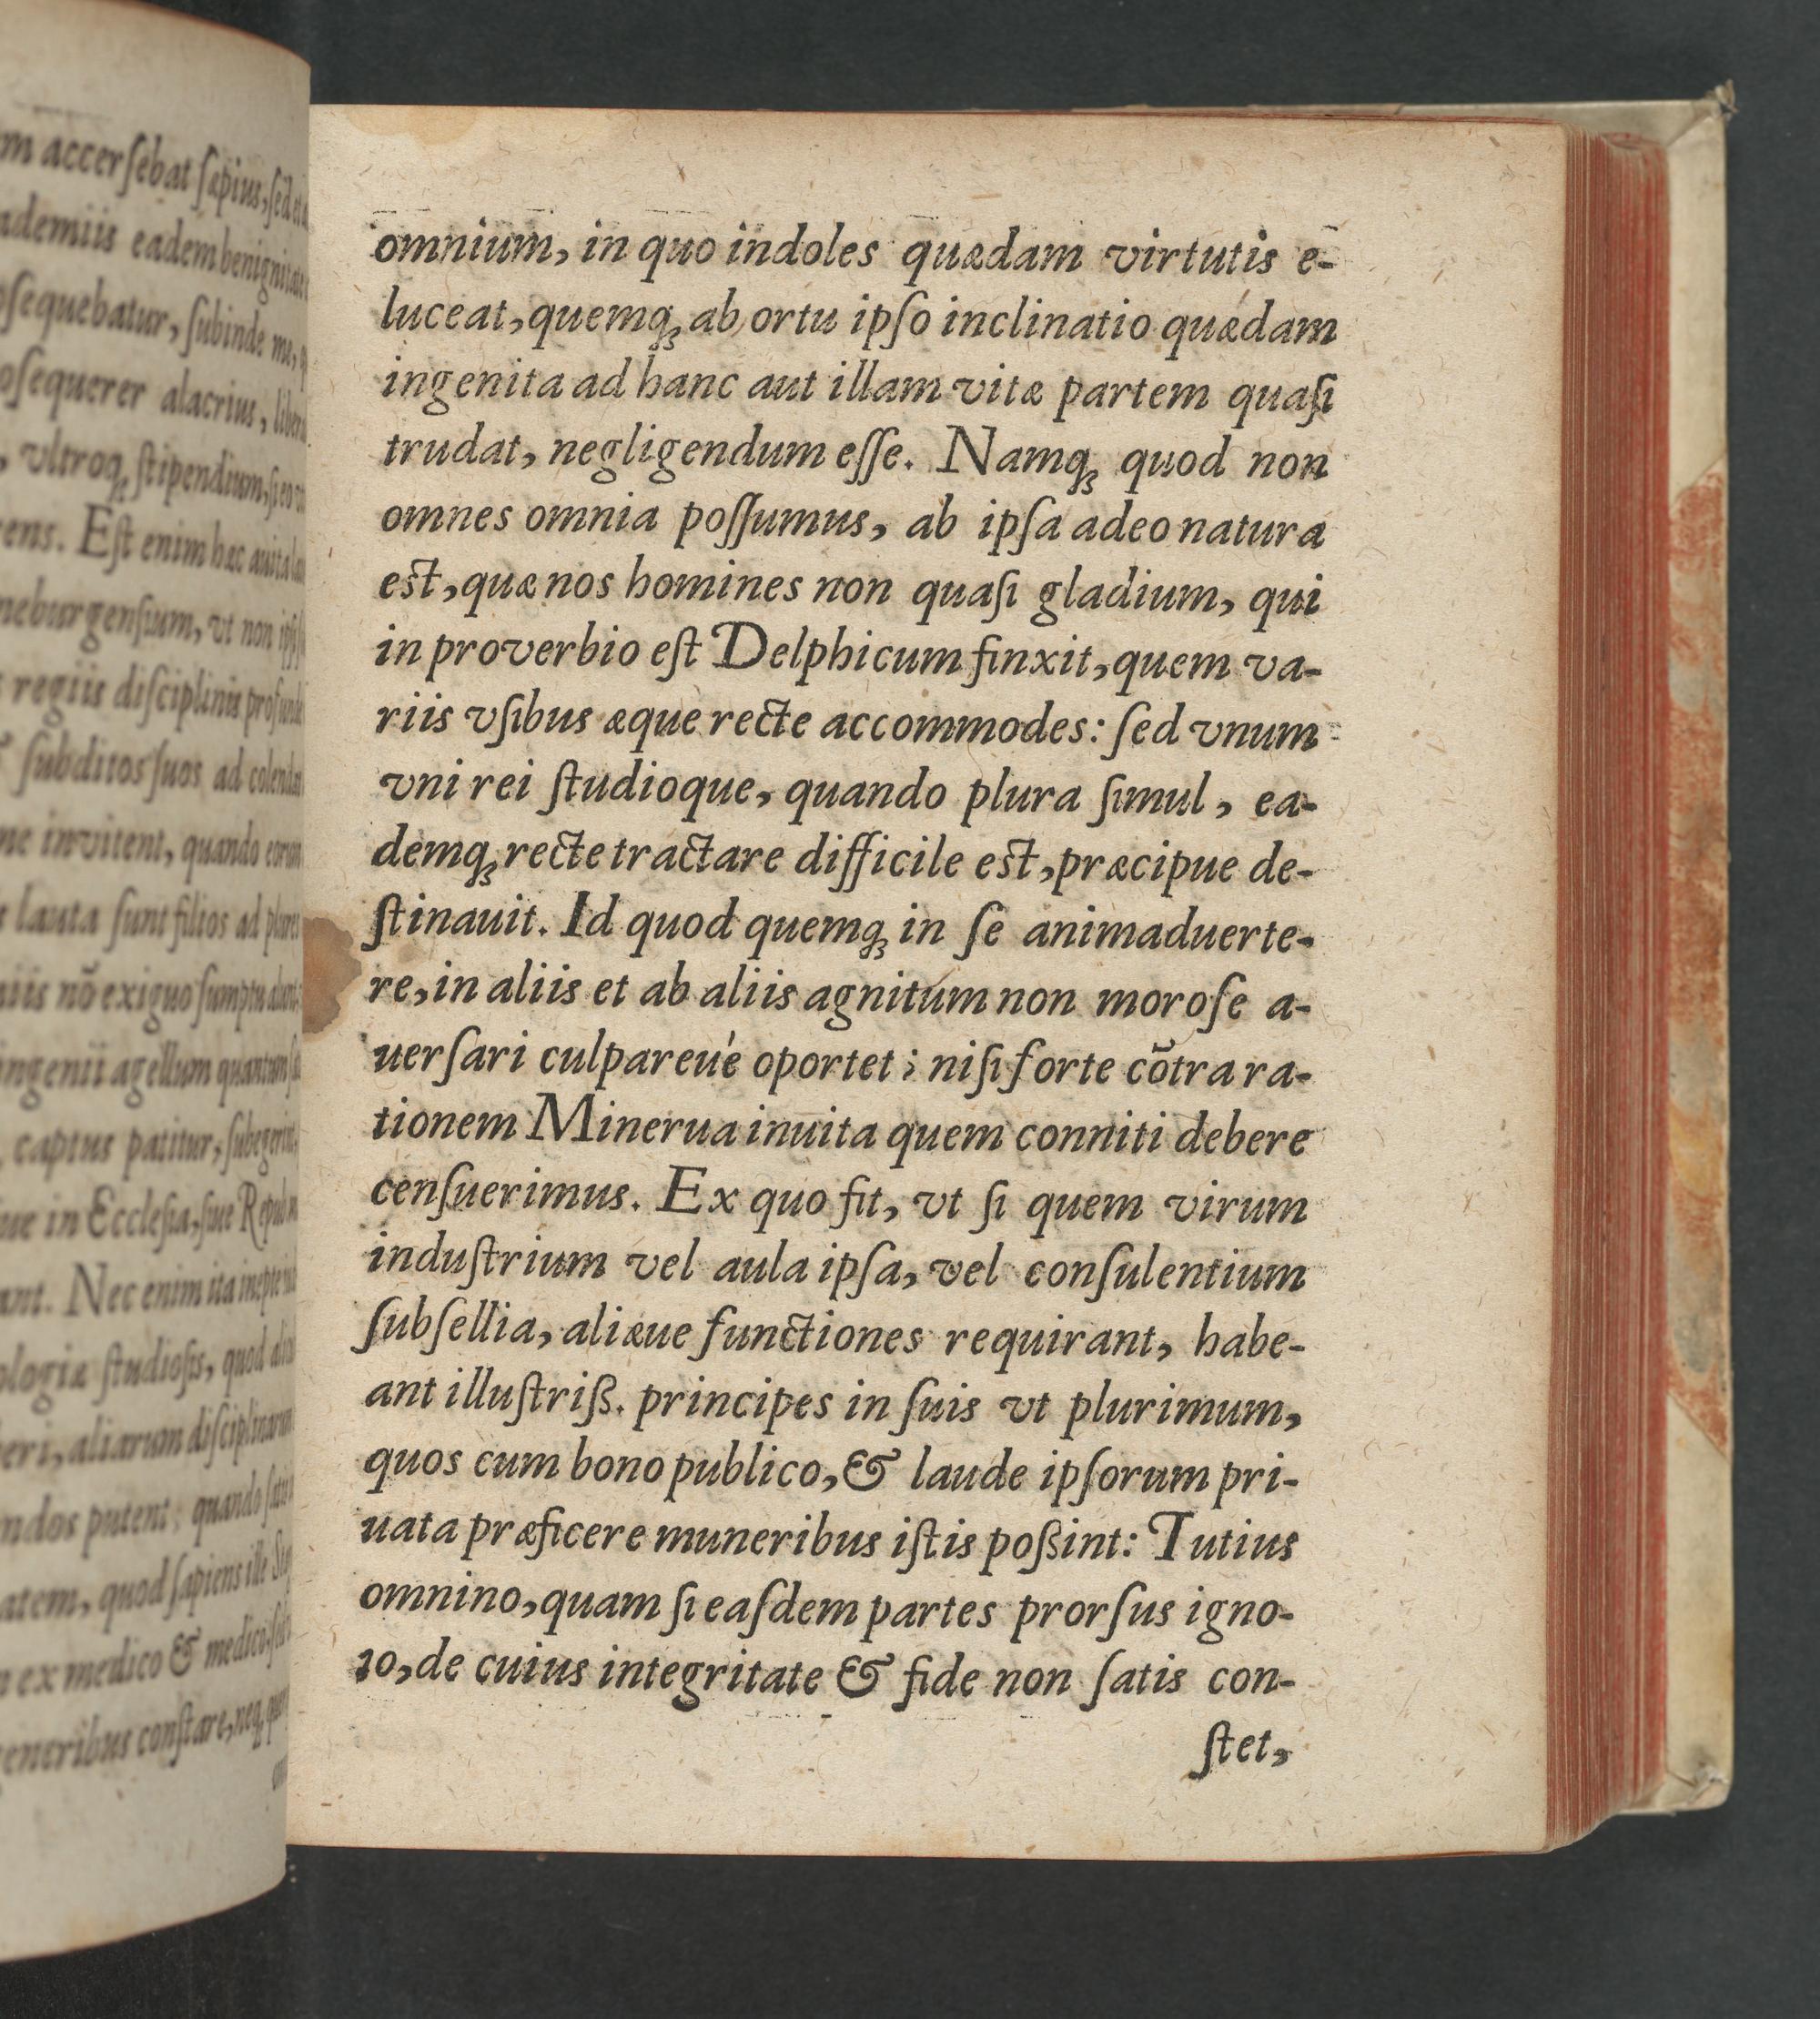 m accerſebat ſæpius, ſed et
ademiis eadem benignitate
oſequebatur, ſubinde me,
oſequerer alacrius,
, vltroq; ſtipendium, ſi eo
ens. Eſt enim hæc
neburgenſium, vt non
regiis diſciplinis
ſubditos ſuos ad
ne invitent, quando eorum
lauta ſunt filios ad plures
niis nõ exiguo ſumptu
ingenii agellum quantum
captus patitur,
ue in Eccleſia, ſiue
ant. Nec enim ita inepte
ologiæ ſtudioſis, quod
eri, aliarum diſciplinarum
ndos putent; quando
atem, quod ſapiens ille
ex medico & medico,
eneribus conſtare, neq;
omnium, in quo indoles quædam virtutis e-
luceat, quemq; ab ortu ipſo inclinatio quædam
ingenita ad hanc aut illam vitæ partem quaſi
trudat, negligendum eſſe. Namq; quod non
omnes omnia poſſumus, ab ipſa adeo natura
est, quæ nos homines non quaſi gladium, qui
in proverbio eſt Delphicum finxit, quem va-
riis vſibus æque recte accommodes: ſed vnum
vni rei ſtudioque, quando plura ſimul, ea-
demq; recte tractare difficile est, præcipue de-
ſtinauit. Id quod quemq; in ſe animaduerte-
re, in aliis et ab aliis agnitum non moroſe a-
uerſari culpareué oportet; niſi forte cõtra ra-
tionem Minerua inuita quem conniti debere
cenſuerimus. Ex quo fit, vt ſi quem virum
induſtrium vel aula ipſa, vel conſulentium
ſubſellia, aliæue functiones requirant, habe-
ant illuſtriß. principes in ſuis vt plurimum,
quos cum bono publico, & laude ipſorum pri-
uata præficere muneribus iſtis poßint: Tutius
omnino, quam ſi eaſdem partes prorſus igno-
ro, de cuius integritate & fide non ſatis con-
ſtet,